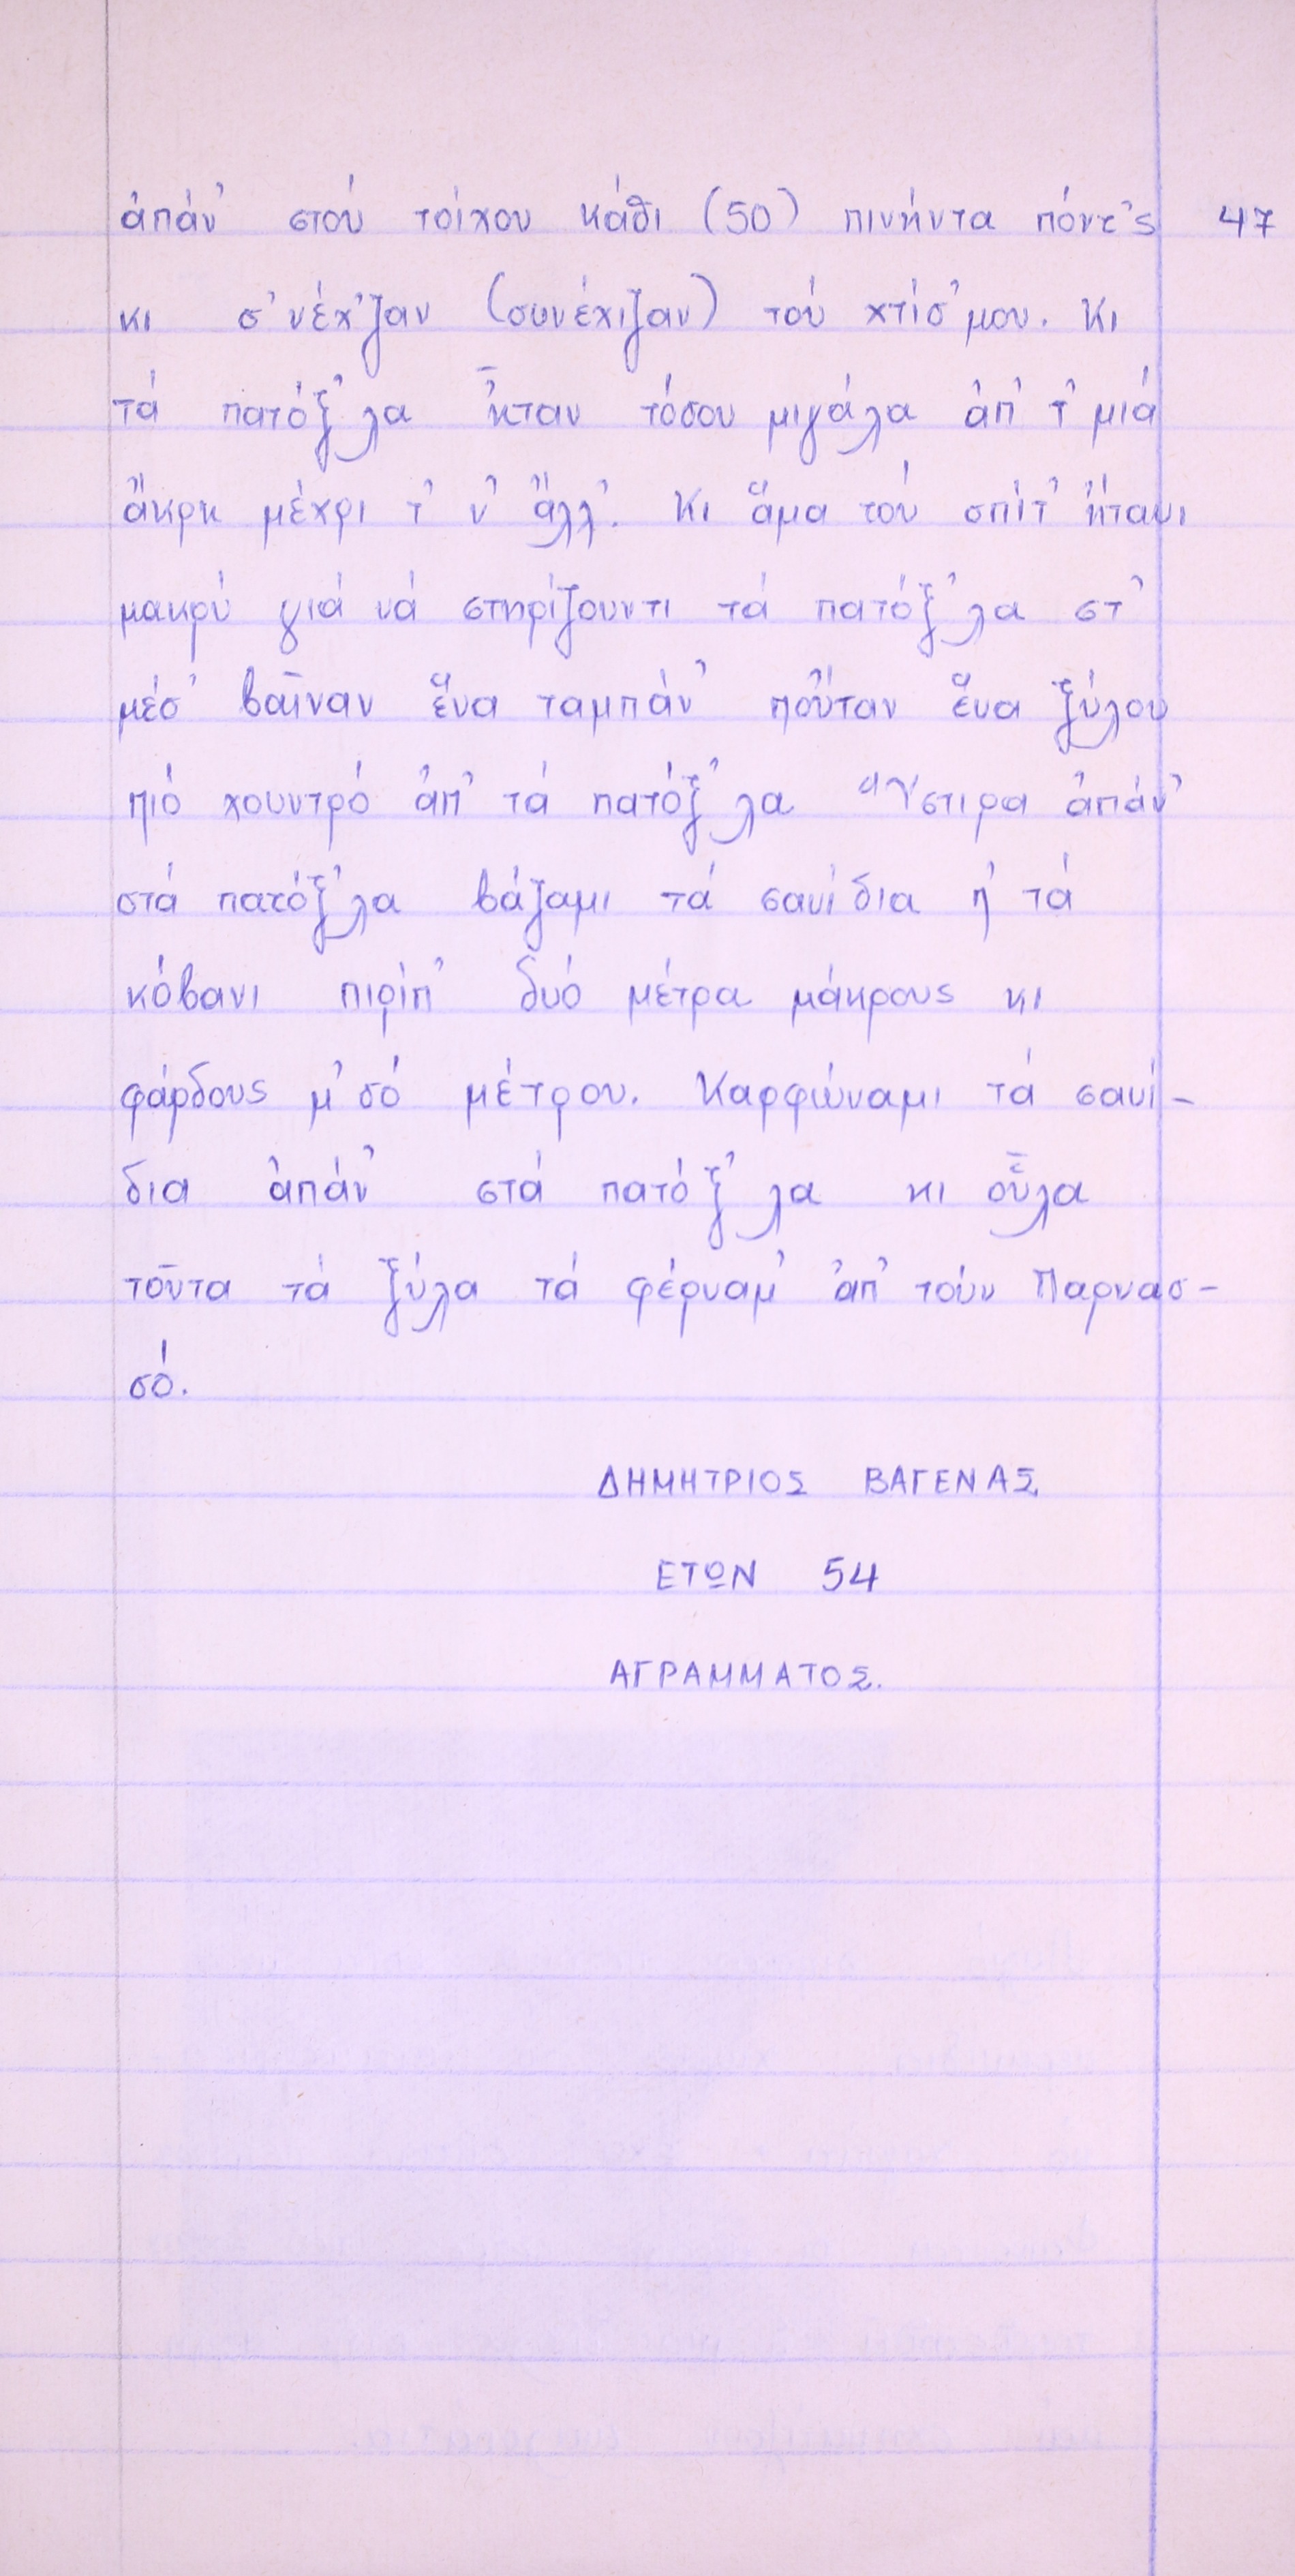 ἀπάν' στού τοίχου κάθι (50) πινήντα πόντ'ς 47
κι σ'νέχ'ζαν (συνέχιζαν) τού χτίσ'μου. Κι
τά πατόξ'λα ἦταν τόσου μιγάλα ἀπ' τ' μιά
ἄκρη μέχρι τ' ν' ἄλλ'. Κι ἅμα τού σπίτ' ἤτανι
μακρύ γιά νά στηρίζουντι τά πατόξ'λα στ'
μέσ' βαῖναν ἕνα ταμπάν' ποὔταν ἕνα ξύλου
πιό χουντρό ἀπ' τά πατόξ'λα Ὕστιρα ἀπάν'
στά πατόξ'λα βάζαμι τά σανίδια π' τά
κόβανι πιρίπ' δυό μέτρα μάκρους κι
φάρδους μ'σό μέτρου. Καρφώναμι τά σανί-
δια ἀπάν' στά πατόξ'λα κι οὖλα
τοῦτα τά ξύλα τά φέρναμ' ἀπ' τούν Παρνασ-
σό.
ΔΗΜΗΤΡΙΟΣ ΒΑΓΕΝΑΣ
ΕΤΩΝ 54
ΑΓΡΑΜΜΑΤΟΣ.